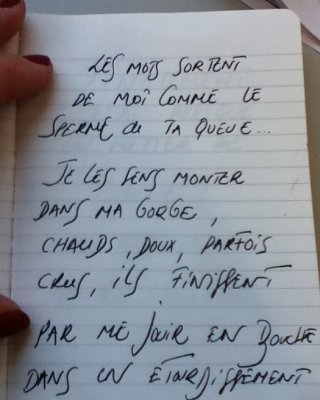 LES MOTS SORTENT
DE MOI COMME LE
SPERME de TA QUEUE...
JE LES SENS MONTER
DANS MA GORGE,
CHAUDS, DOUX, PARFOIS
CRUS, iLS FINISSENT
PAR ME JOUIR EN BOUCHE
DANS UN ETOURDISSEMENT